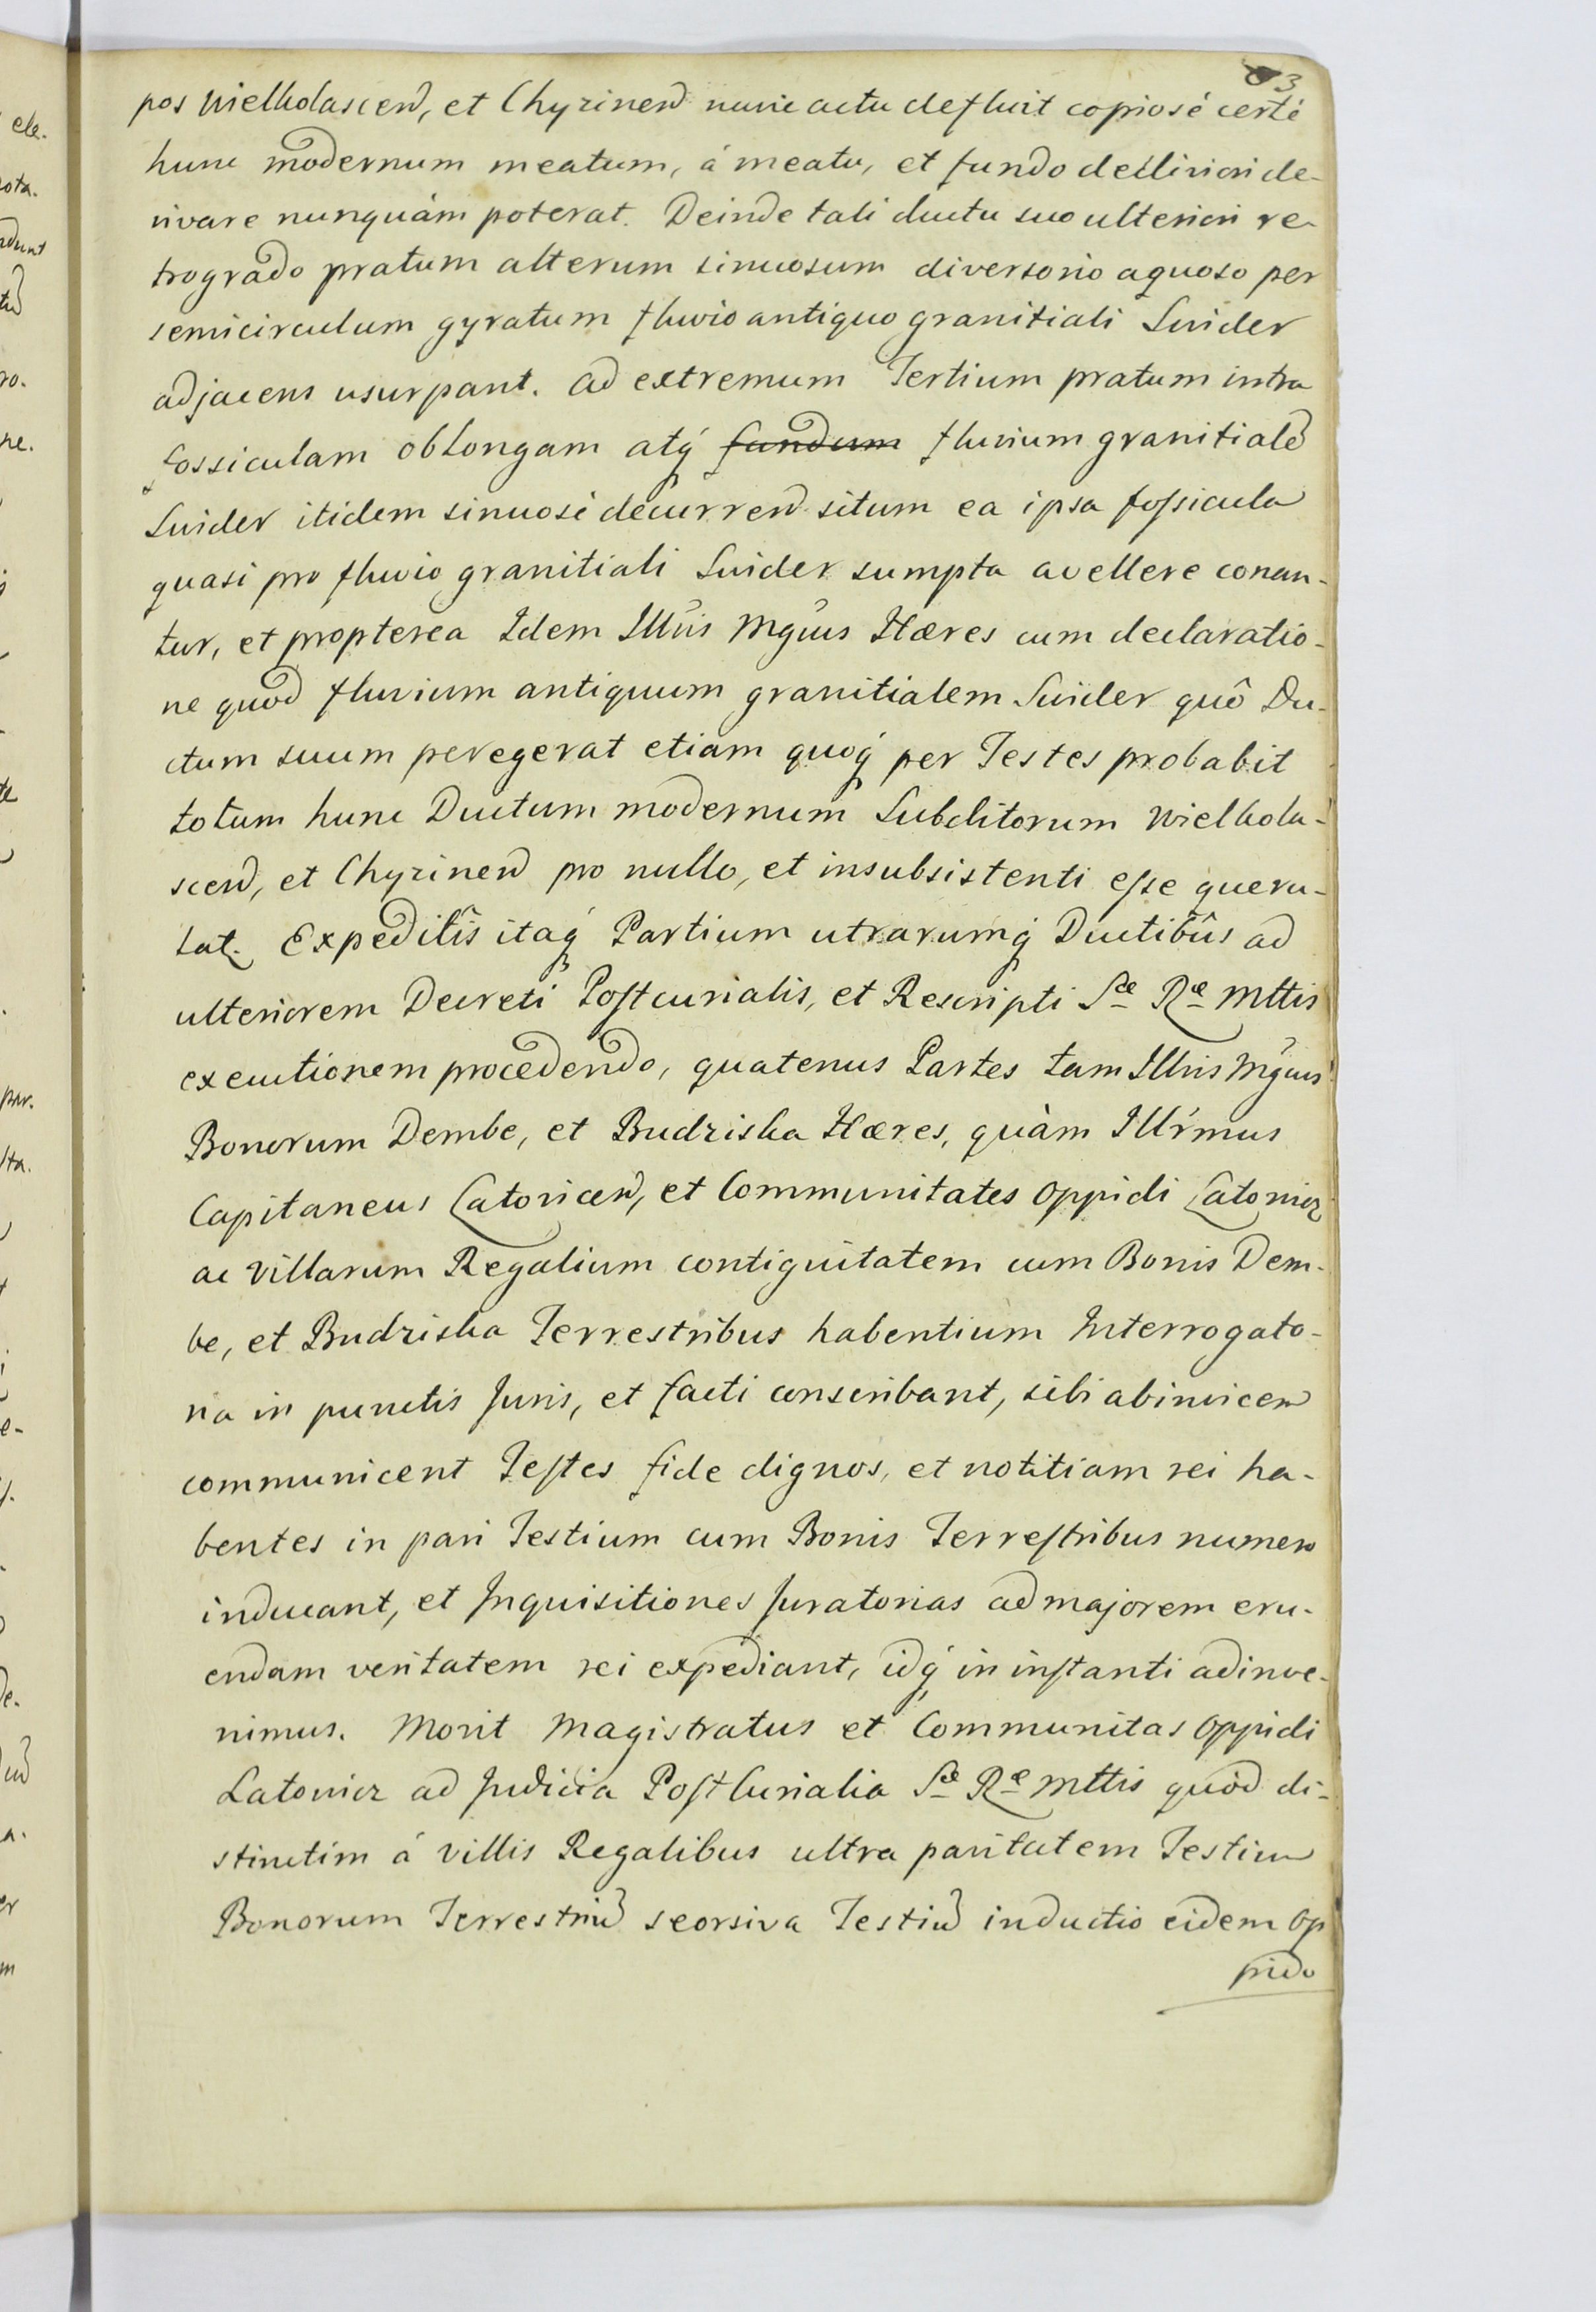 3
pos Wielholascen, et Chyzinen nunc actu defluit copiosé certé
hunc modernum meatum, á meatu, et fundo declivion de-
rivare nunquám poterat. Deinde tali ductu suo ulteriori re-
trogrado pratum alterum sinuosum diversorio aquoso per
semicirculum gyratum fluvio antiquo granitiali Swider
adjacens usurpant. ad extremum Tertium pratum intra
fossiculam oblongam atq́ fundum fluvium granitialẽ
Swider itidem sinuosé decurren situm ea ipsa fossicula
quasi pro fluvio granitiali Swider sumpta avellere conan-
tur, et propterea Idem Illris Mgcus Hæres cum declaratio-
ne quod fluvium antiquum granitialem Swider quô Du-
ctum suum peregerat etiam quoq́ per Testes probabit
totum hunc Ductum modernum Subditorum Wielhola-
scen, et Chyzinen pro nullo, et insubsistenti esse queru-
lat. Expeditîs itaq́ Partium utrarumq́ Ductibûs ad
ulteriorem Decreti Postcurialis, et Rescripti Sæ Ræ Mttis
executionem procedendo, quatenus Partes tam Illris Mgcus
Bonorum Dembe, et Budziska Hæres, quàm Illrmus
Capitaneus Latovicen, et Communitates Oppidi Latowicz
ac Villarum Regalium contiguitatem cum Bonis Dem-
be, et Budziska Terrestribus habentium Interrogato-
ria in punctis Juris, et facti conscribant, sibi abinvicem
communicent Testes fide dignos, et notitiam rei ha-
bentes in pari Testium cum Bonis Terrestribus numero
inducant, et Inquisitiones Juratorias ad majorem eru-
endam veritatem rei expediant, idq́ in instanti adinve-
nimus. Movit Magistratus et Communitas Oppidi
Latowicz ad Judicia PostCurialia Sæ Ræ Mttis quòd di-
stinctim á Villis Regalibus ultra paritatem Testium
Bonorum Terrestriũ seorsiva Testiũ inductio eidem Op
pido